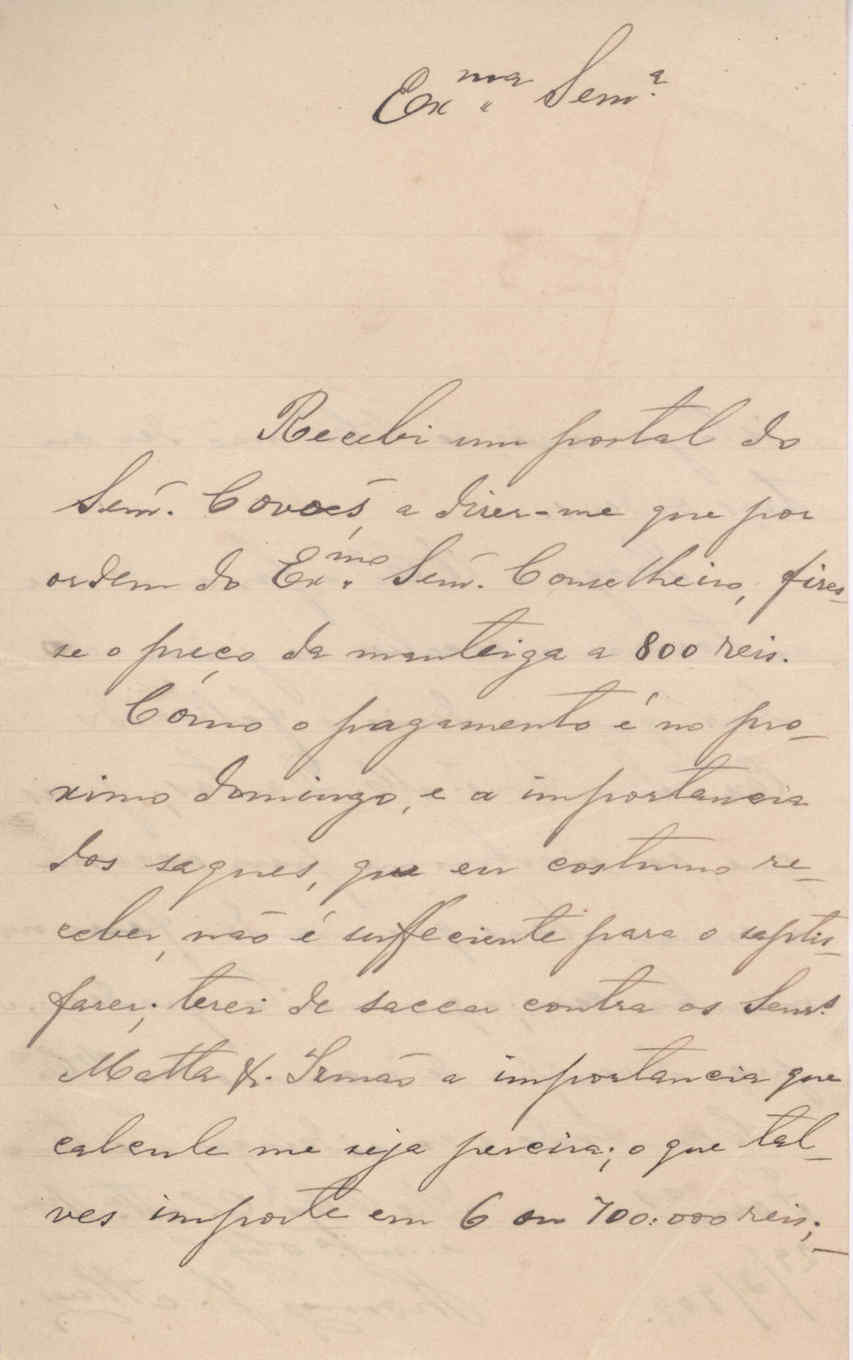 Ex.ma Senr.a
Recebi um postal do
Senr. Covoẽs, a dizer-me que por
ordem do Ex.mo Senr. Conselheiro, fizes-
se o preço da manteiga a 800 reis.
Cómo o pagamento é no pro-
ximo domingo, e a importancia
dos saques, que eu costumo re-
ceber, não é suffeciente para o saptis-
fazer; terei de saccar contra os Senrs
Matta & Irmão a importancia que
calcule me seja percisa; o que tal-
ves importe em 6 ou 700:000 reis;-